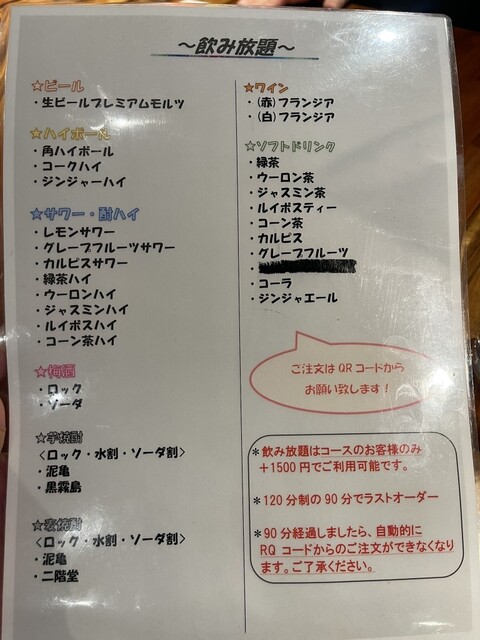 ～飲み放題～
☆ビール
・生ビールプレミアムモルツ
☆ハイボール
・角ハイボール
・コークハイ
・ジンジャーハイ
☆サワー・酎ハイ
・レモンサワー
・グレープフルーツサワー
・カルピスサワー
・緑茶ハイ
・ウーロンハイ
・ジャスミンハイ
・ルイボスハイ
・コーン茶ハイ
☆梅酒
・ロック
・ソーダ
☆芋焼酎
<ロック・水割・ソーダ割>
・泥亀
・黒霧島
☆麦焼酎
<ロック・水割・ソーダ割>
・泥亀
・二階堂
☆ワイン
・(赤)フランジア
・(白)フランジア
☆ソフトドリンク
・緑茶
・ウーロン茶
・ジャスミン茶
・ルイボスティー
・コーン茶
・カルピス
・グレープフルーツ
・
・コーラ
・ジンジャエール
ご注文はQRコードから
お願い致します！
＊飲み放題はコースのお客様のみ
＋1500円でご利用可能です。
＊120分制の90分でラストオーダー
＊90分経過しましたら、自動的に
RQ コードからのご注文ができなくなり
ます。ご了承ください。